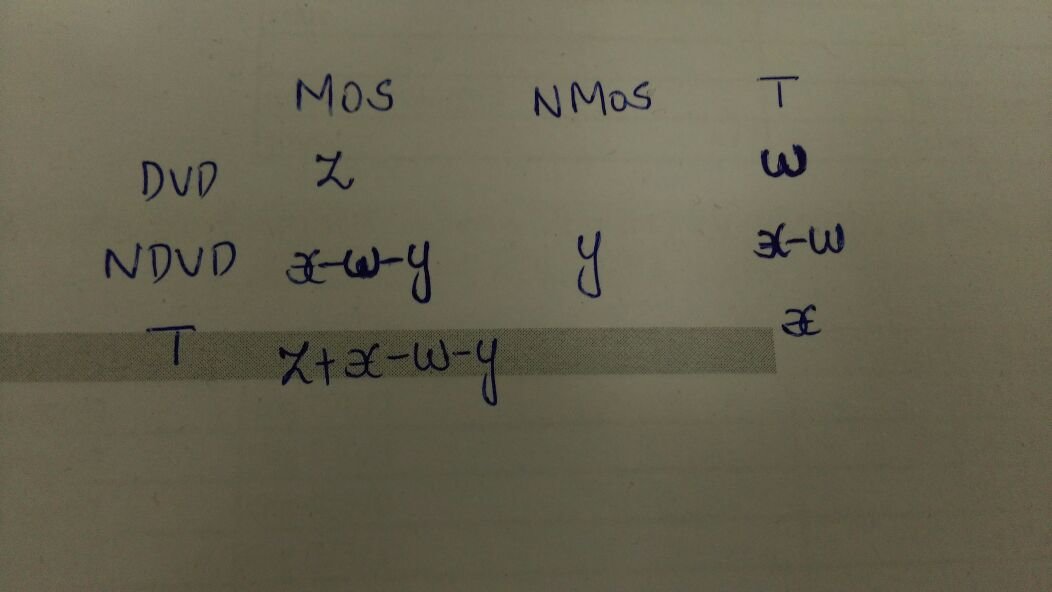 MOS NMOS T
DVD z w
NDVD x-w-y y x-w
T z+x-w-y x